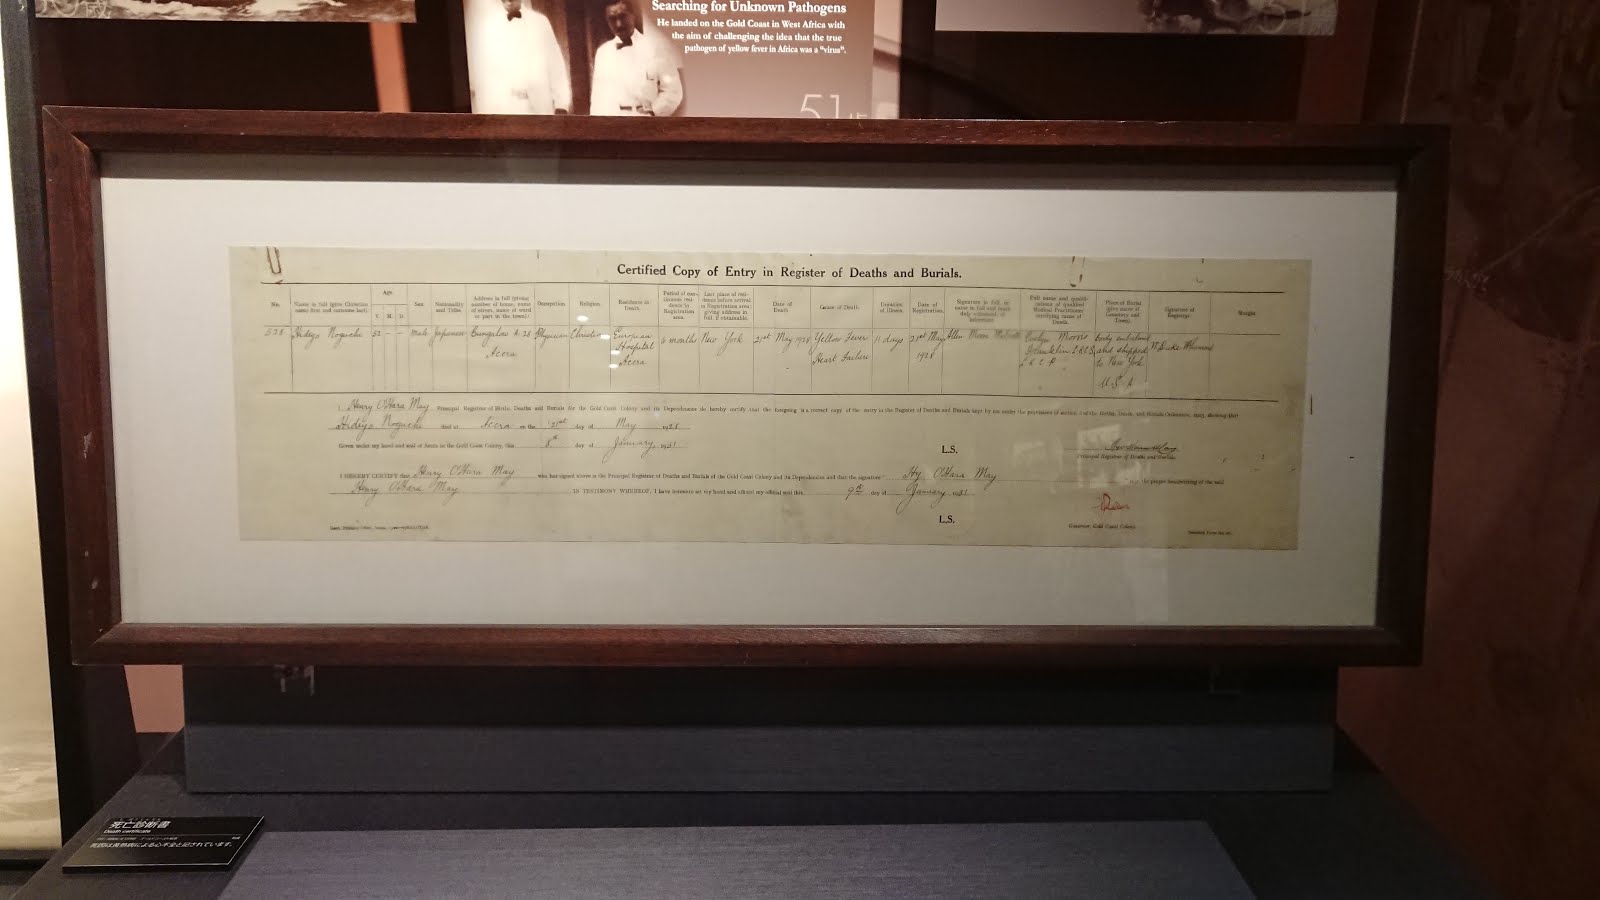 Searching for Unknown Pathogens
He landed on the Gold Coast in West Africa with
the aim of challenging the idea that the true
pathogen of yellow fever in Africa was a "virus".
51
Certified Copy of Entry in Register of Deaths and Burials.
No.
Name in full (give Christian name first and surname last).
Age.
Y. M. D.
Sex
Nationality and Tribe.
Address in full (giving number of house, name of street, name of ward or part in the town).
Occupation
Religion.
Residence at Death.
Period of continuous residence in Registration area.
Last place of residence before arrival in Registration area; giving address in full if obtainable.
Date of Death
Cause of Death.
Duration of Illness.
Date of Registration.
Full name and qualifications of qualified Medical Practitioner certifying cause of Death.
Place of Burial (give name of Cemetery and Town).
Signature of Registrar.
Hideyo Noguchi 52 - - male Japanese Bungalow
Accra
Physician Christian
European
Hospital
Accra
6 months New York 21st May 1928 Yellow Fever
Heart Failure
11 days 21st May
1928
Allen
Evelyn Morris
Franklin
Body embalmed
and shipped
to New York
U.S.A
I Henry O'Hara May Principal Registrar of Births, Deaths and Burials for the Gold Coast Colony and its Dependencies do hereby certify that the foregoing is a correct copy of the entry in the Register of Deaths and Burials kept by me under the provisions of
Hideyo Noguchi died at Accra on the 21st day of May 1928
Given under my hand and seal at Accra in the Gold Coast Colony, this 8th day of January, 1931
L.S.
Principal Registrar of Deaths and Burials.
I HEREBY CERTIFY that Henry O'Hara May who has signed above is the Principal Registrar of Deaths and Burials of the Gold Coast Colony and its Dependencies and that the signature Hy O'Hara May is the proper handwriting of the said
Henry O'Hara May IN TESTIMONY WHEREOF, I have hereunto set my hand and affixed my official seal this 9th day of January 1931.
L.S.
Governor Gold Coast Colony.
死亡診断書
Death certificate
死因は黄熱病による心不全と記されています。